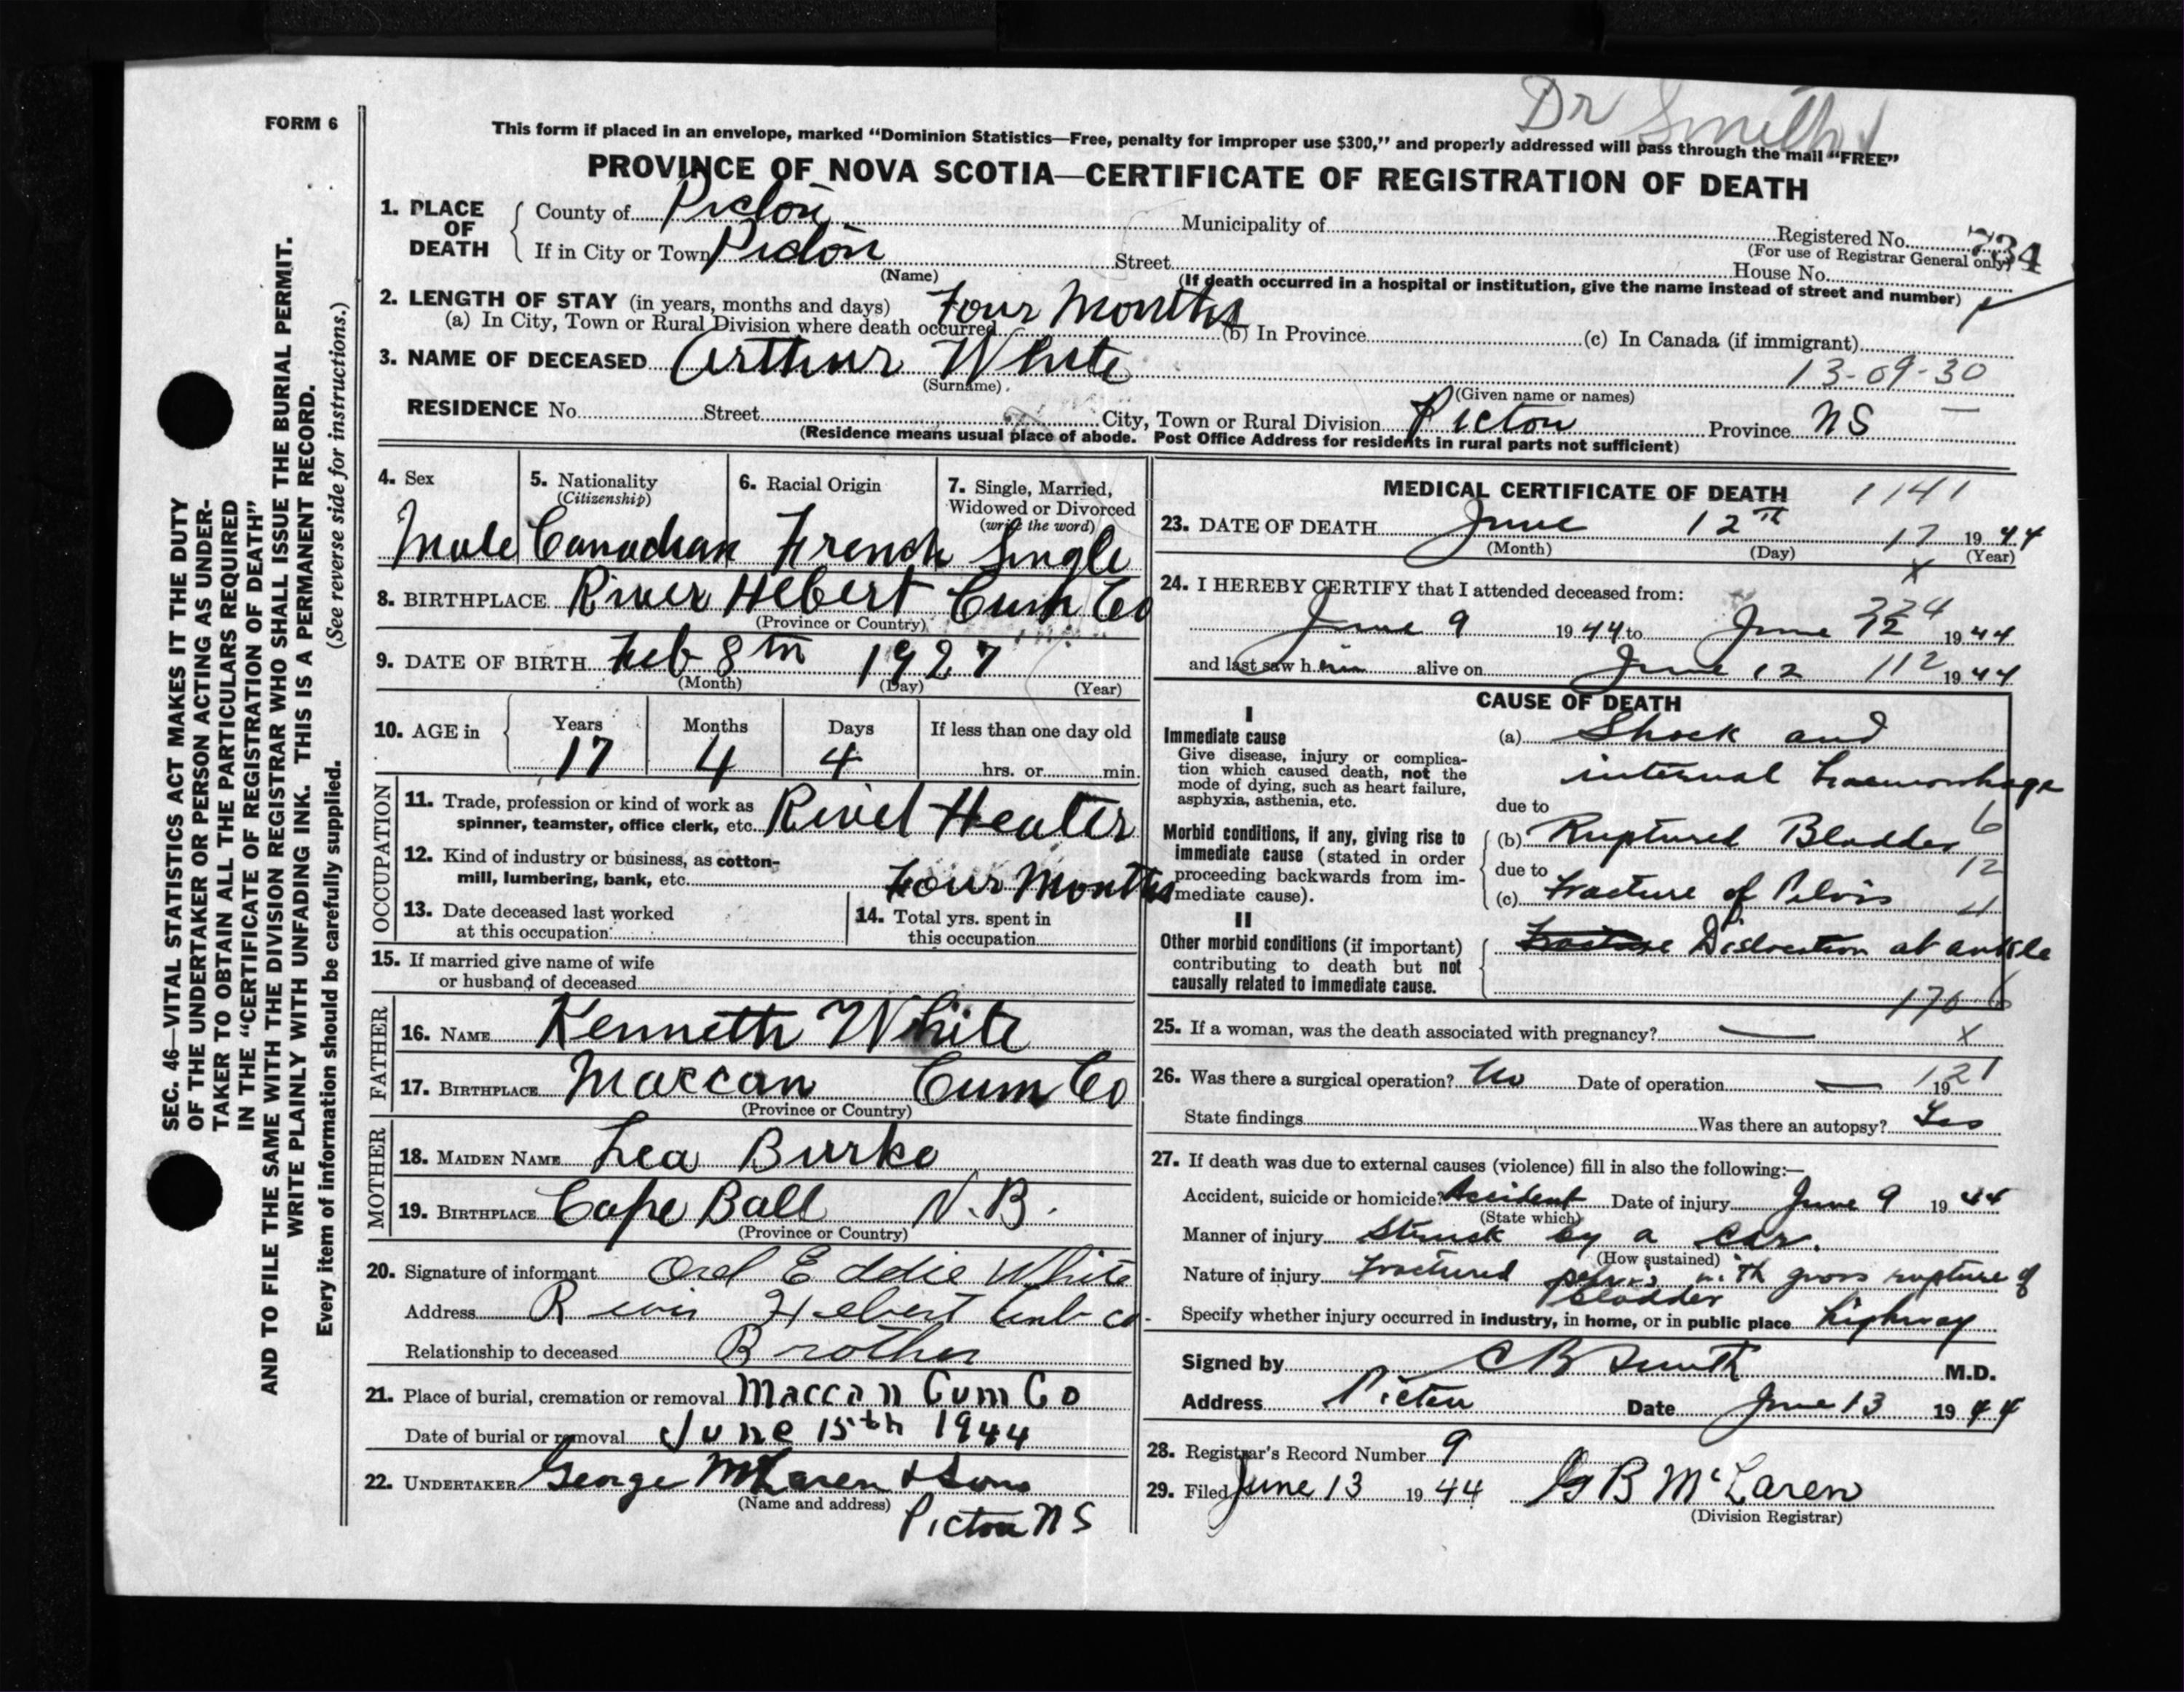 Dr Smith
FORM 6
This form if placed in an envelope, marked “Dominion Statistics—Free, penalty for improper use $300,” and properly addressed will pass through the mail “FREE”
PROVINCE OF NOVA SCOTIA—CERTIFICATE OF REGISTRATION OF DEATH
1. PLACE OF DEATH
County of Pictou Municipality of Registered No. 734
(For use of Registrar General only)
If in City or Town Pictou Street House No.
(Name) (If death occurred in a hospital or institution, give the name instead of street and number)
2. LENGTH OF STAY (in years, months and days)
(a) In City, Town or Rural Division where death occurred Four Months (b) In Province (c) In Canada (if immigrant)
3. NAME OF DECEASED Arthur White 13-09-30
(Surname) (Given name or names)
RESIDENCE No. Street City, Town or Rural Division Pictou Province NS
(Residence means usual place of abode. Post Office Address for residents in rural parts not sufficient)
4. Sex 5. Nationality (Citizenship) 6. Racial Origin 7. Single, Married, Widowed or Divorced (write the word)
Male Canadian French Single
8. BIRTHPLACE River Hebert Cum Co
(Province or Country)
9. DATE OF BIRTH Feb 8th 1927
(Month) (Day) (Year)
10. AGE in Years Months Days If less than one day old
17 4 4 hrs. or min.
OCCUPATION
11. Trade, profession or kind of work as
spinner, teamster, office clerk, etc. Rivet Heater
12. Kind of industry or business, as cotton-
mill, lumbering, bank, etc. Four Months
13. Date deceased last worked
at this occupation
14. Total yrs. spent in
this occupation
15. If married give name of wife
or husband of deceased
FATHER
16. NAME Kenneth White
17. BIRTHPLACE Maccan Cum Co
(Province or Country)
MOTHER
18. MAIDEN NAME Lea Burke
19. BIRTHPLACE Cape Ball N.B.
(Province or Country)
20. Signature of informant Eddie White
Address River Hebert Cumb Co.
Relationship to deceased Brother
21. Place of burial, cremation or removal Maccan Cum Co
Date of burial or removal June 15th 1944
22. UNDERTAKER George McLaren & Sons
(Name and address) Pictou NS
MEDICAL CERTIFICATE OF DEATH 1141
23. DATE OF DEATH June 12th 17 1944
(Month) (Day) (Year)
x
24. I HEREBY CERTIFY that I attended deceased from:
224
June 9 1944 to June 12 1944
and last saw him alive on June 12 112 1944
CAUSE OF DEATH
I
Immediate cause
Give disease, injury or complica-
tion which caused death, not the
mode of dying, such as heart failure,
asphyxia, asthenia, etc.
(a) Shock and
internal haemorrhage
due to 6
Morbid conditions, if any, giving rise to
immediate cause (stated in order
proceeding backwards from im-
mediate cause).
(b) Ruptured Bladder
due to 12
(c) Fracture of Pelvis 4
II
Other morbid conditions (if important)
contributing to death but not
causally related to immediate cause.
Fracture Dislocation at ankle
170
25. If a woman, was the death associated with pregnancy? — x
26. Was there a surgical operation? No Date of operation — 19 121
State findings Was there an autopsy? Yes
27. If death was due to external causes (violence) fill in also the following:—
Accident, suicide or homicide? Accident Date of injury June 9 1944
(State which)
Manner of injury Struck by a car.
(How sustained)
Nature of injury Fractured pelvis with gross rupture of
bladder
Specify whether injury occurred in industry, in home, or in public place highway
Signed by C B Smith M.D.
Address Pictou Date June 13 1944
28. Registrar's Record Number 9
29. Filed June 13 1944 G B McLaren
(Division Registrar)
SEC. 46—VITAL STATISTICS ACT MAKES IT THE DUTY
OF THE UNDERTAKER OR PERSON ACTING AS UNDER-
TAKER TO OBTAIN ALL THE PARTICULARS REQUIRED
IN THE “CERTIFICATE OF REGISTRATION OF DEATH”
AND TO FILE THE SAME WITH THE DIVISION REGISTRAR WHO SHALL ISSUE THE BURIAL PERMIT.
WRITE PLAINLY WITH UNFADING INK. THIS IS A PERMANENT RECORD.
Every item of information should be carefully supplied. (See reverse side for instructions.)